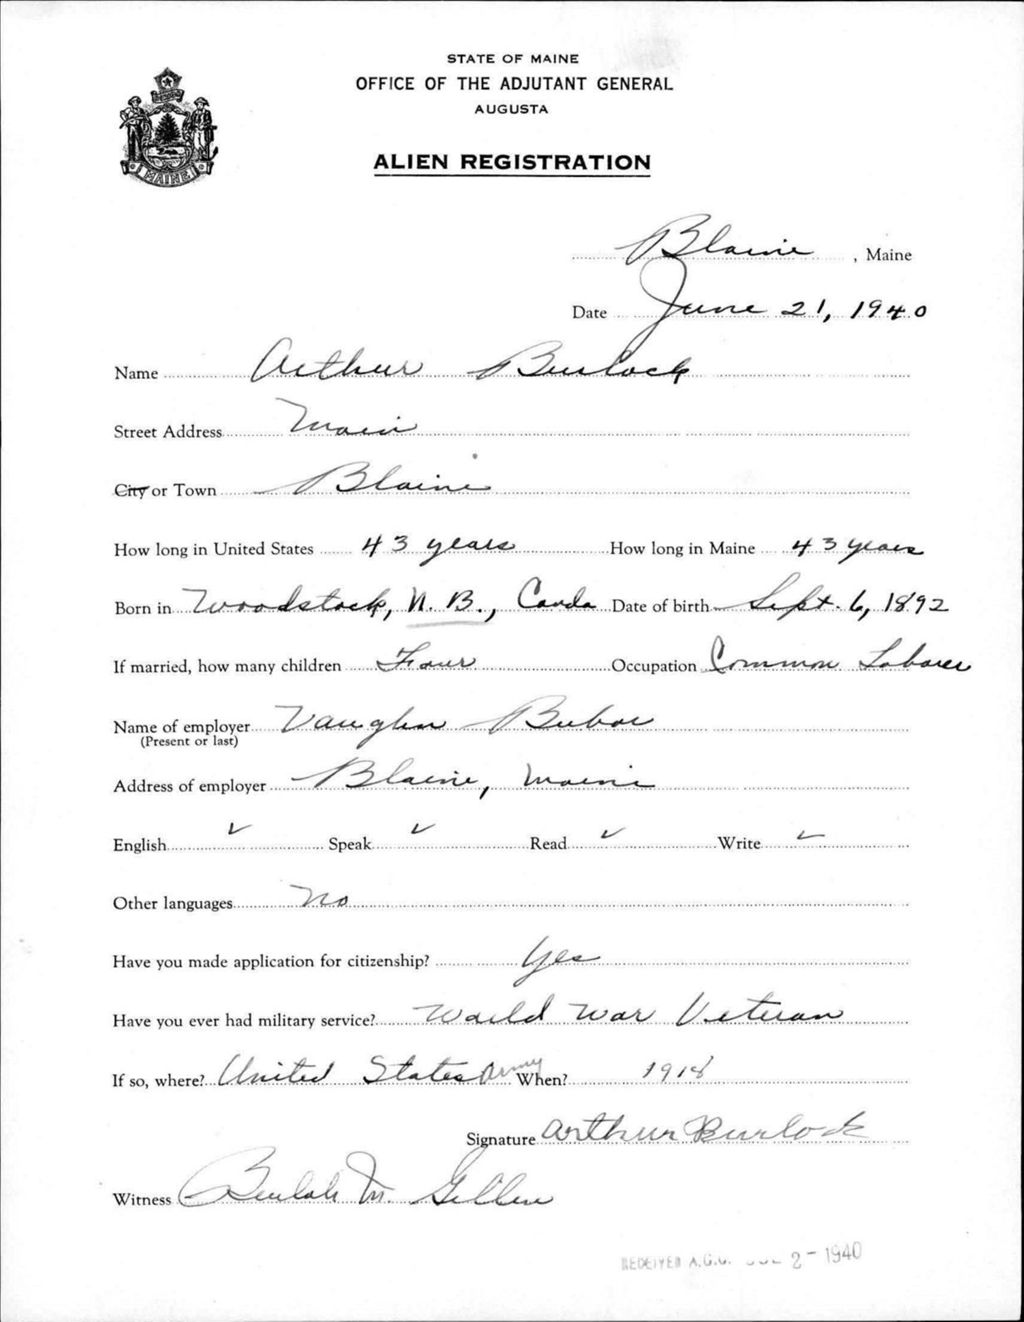 STATE OF MAINE
OFFICE OF THE ADJUTANT GENERAL
AUGUSTA
MAINE
ALIEN REGISTRATION
Blaine, Maine
Date June 21, 1940
Name Arthur Burlock
Street Address Main
City or Town Blaine
How long in United States 43 years How long in Maine 43 years
Born in Woodstock, N. B., Canda Date of birth Sept. 6, 1892
If married, how many children Four Occupation Common Laborer
Name of employer Vaughn Bubar
(Present or last)
Address of employer Blaine, Maine
English ✓ Speak ✓ Read ✓ Write ✓
Other languages No
Have you made application for citizenship? Yes
Have you ever had military service? World War Veteran
If so, where? United States Army When? 1918
Signature Arthur Burlock
Witness Beulah M. Gillen
RECEIVED A.G.O. 2 - 1940